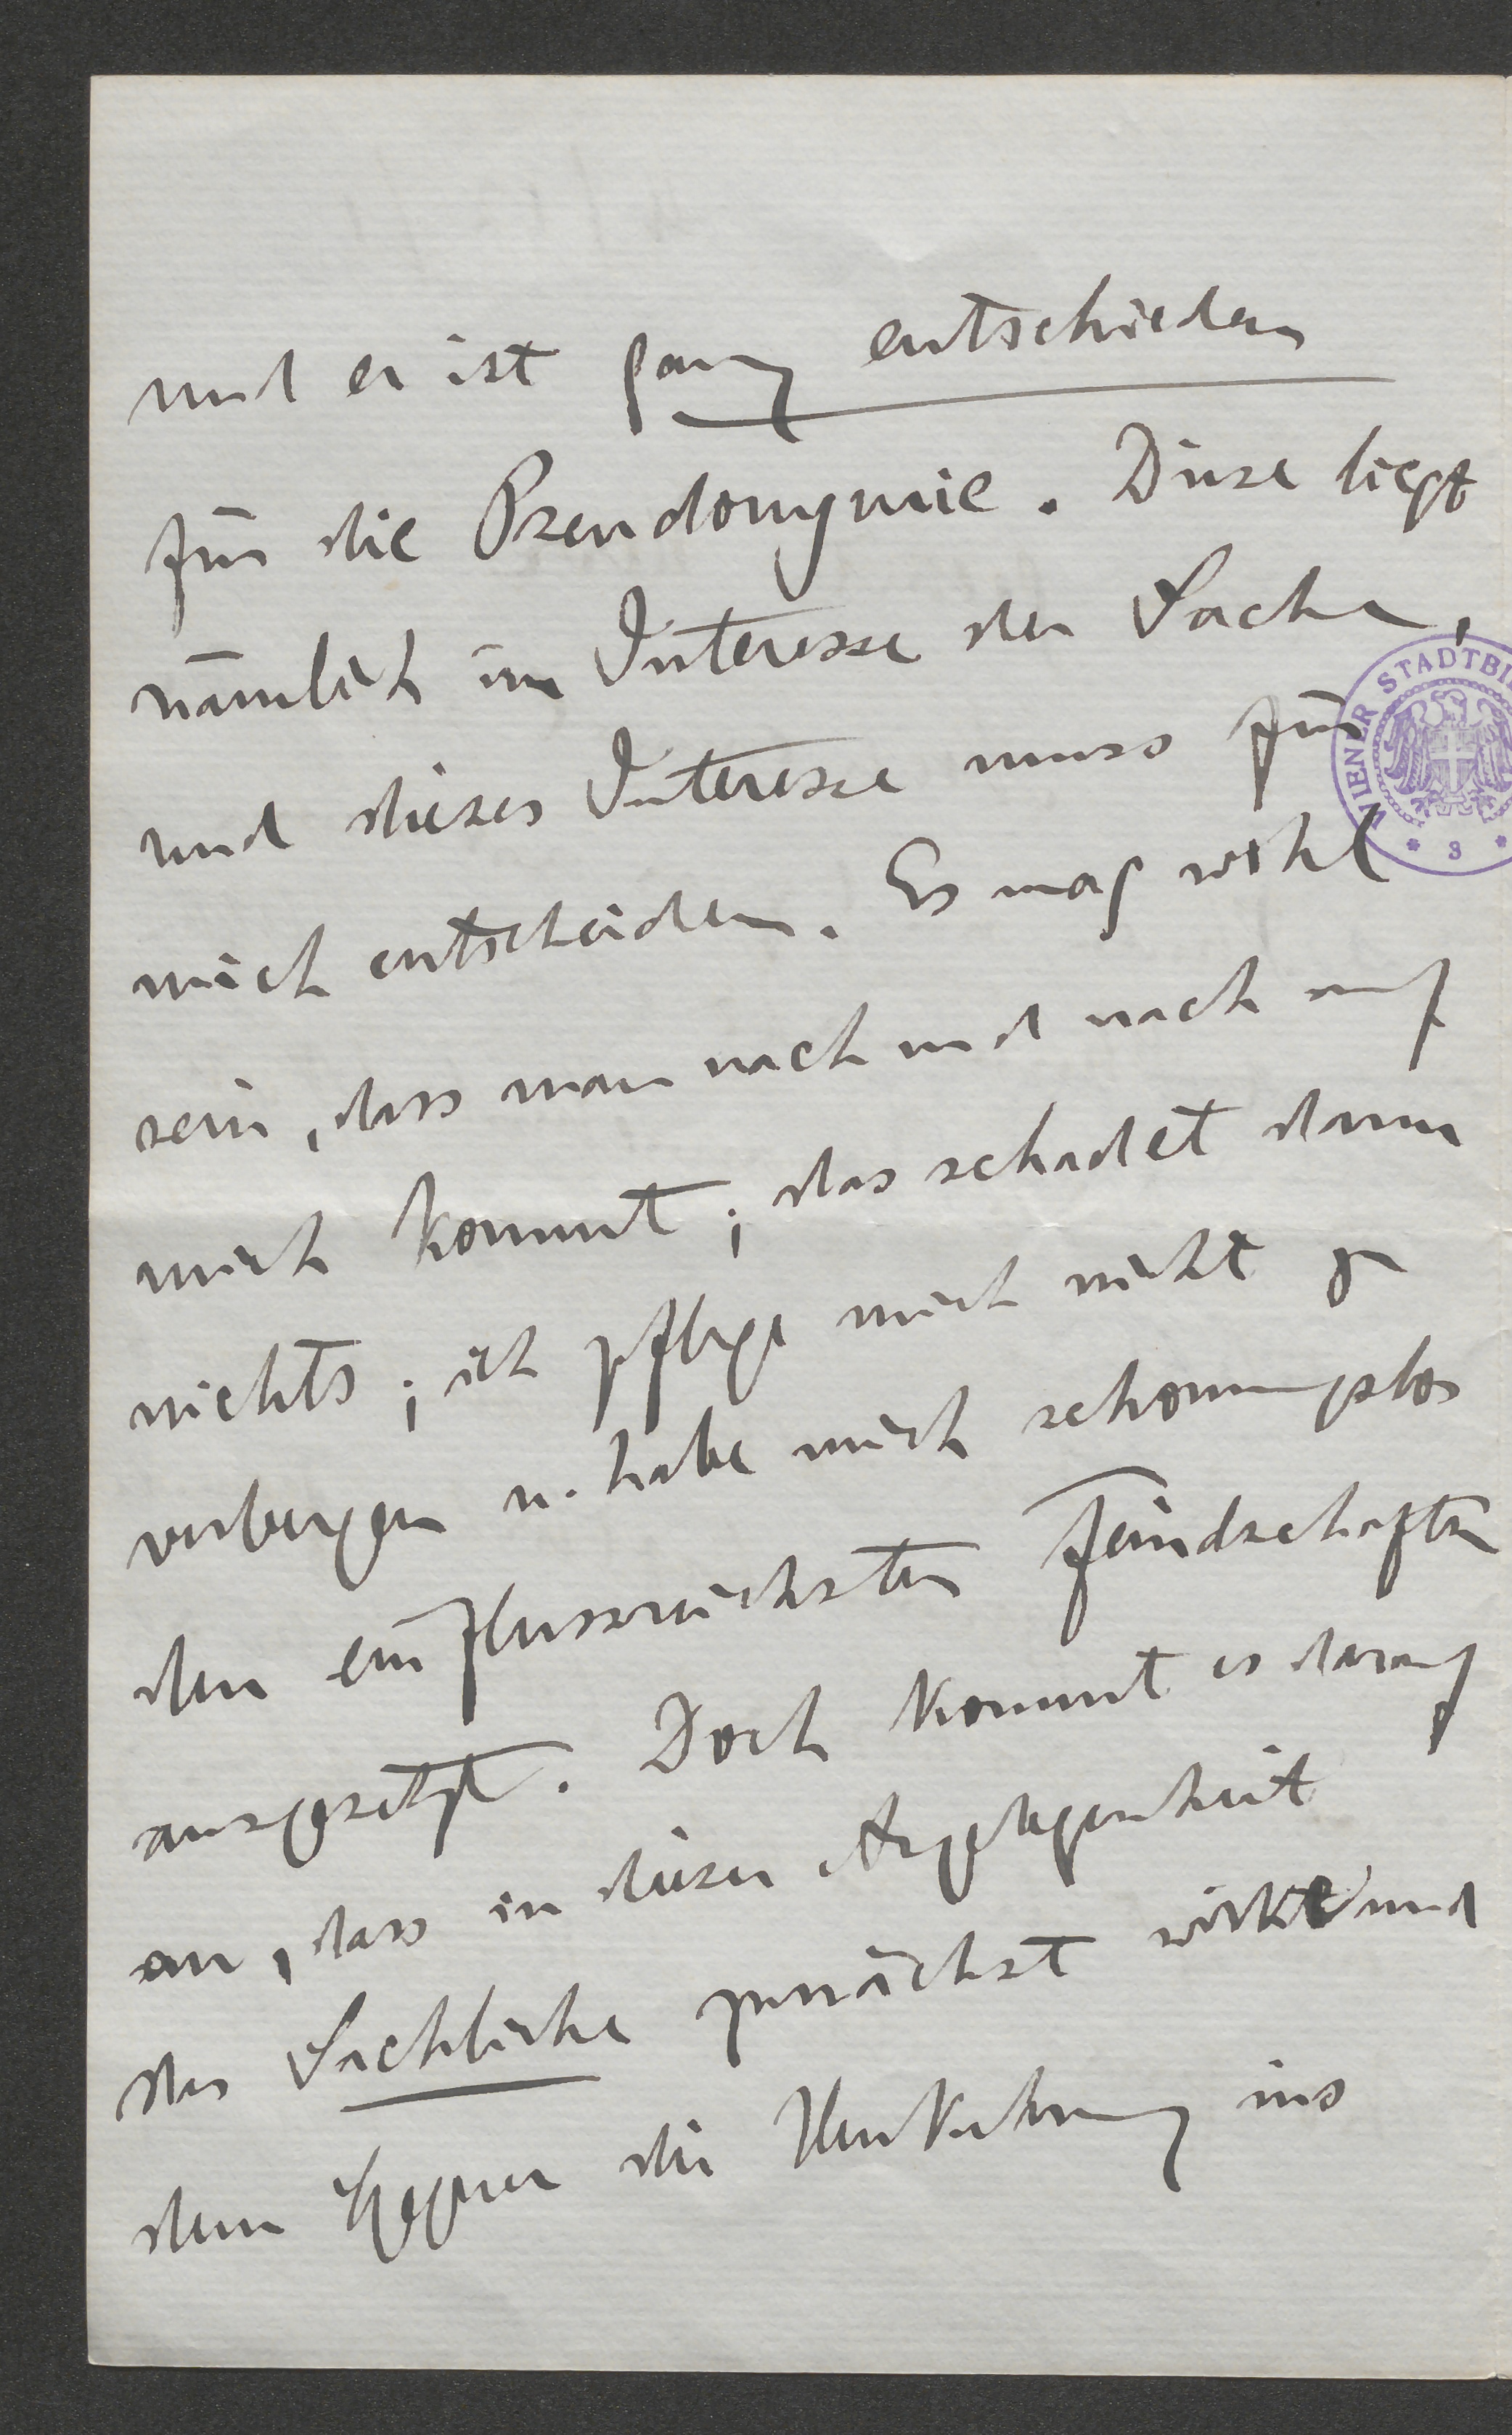 und er ist ganz entschieden
für die Pseudonymie. Diese liegt
nämlich im Interesse der Sache,
und dieses Interesse muss für
mich entscheiden. Es mag wohl
sein, dass man nach und nach auf
mich kommt; das schadet dann
nichts; ich pflege mich nicht zu
verbergen u. habe mich schonungslos
den einflussreichsten Feindschaften
ausgesetzt. Doch kommt es darauf
an, dass in dieser Angelegenheit
das Sachliche zunächst wirke und
dem Gegner die Umkehrung ins
WIENER STADTBI
* 3 *